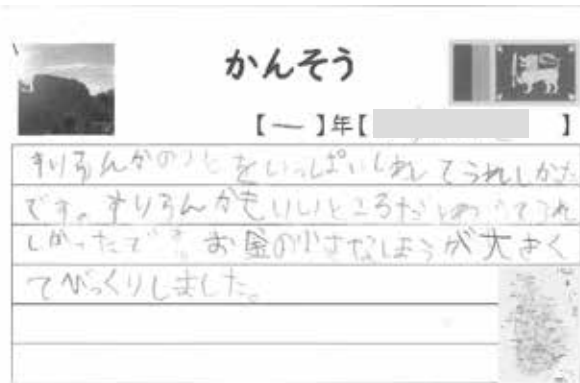 かんそう
【一】年【 】
すりらんかのことをいっぱいしれてうれしかた
です。すりらんかもいいところだ てうれ
しかったです。お金の小さなほうが大きく
てびっくりしました。